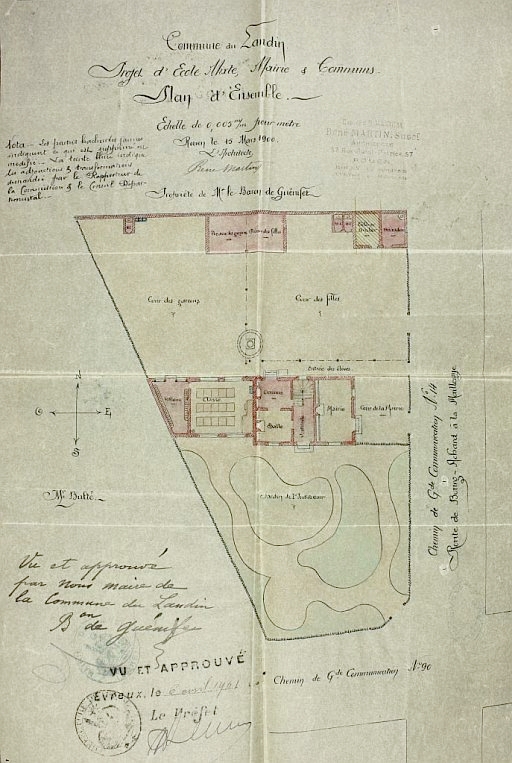 Commune du Landin
Projet d'Ecole Mixte, Mairie & Communs.
Plan d'Ensemble.
Echelle de 0,005 m/m pour mètre
Rouen le 15 Mars 1900.
L'Architecte,
René Martin
RENÉ MARTIN, Succr
ARCHITECTE
ROUEN
Nota - Les parties hachurées jaunes
indiquent ce qui est supprimé ou
modifié. La teinte bleue indique
les adjonctions & transformations
demandées par le Rapporteur de
la Commission & le Conseil Départ-
emental.
Propriété de Mr le Baron de Guénifet
Préau des garçons
Préau des filles
Cour des garçons
Cour des filles
Entrée des élèves
Classe
Cuisine
Salle
Vestibule
Mairie
Cour de la Mairie
Jardin de l'Instituteur
N
O
E
S
Mr Butté
Chemin de Gde Communication No 14
Route de Bourg-Achard à la Mailleraye
Chemin de Gde Communication No 90
Vu et approuvé
par nous maire de
la Commune du Landin
Bon de Guénifet
VU ET APPROUVÉ
Évreux, le 6 avril 1901
Le Préfet